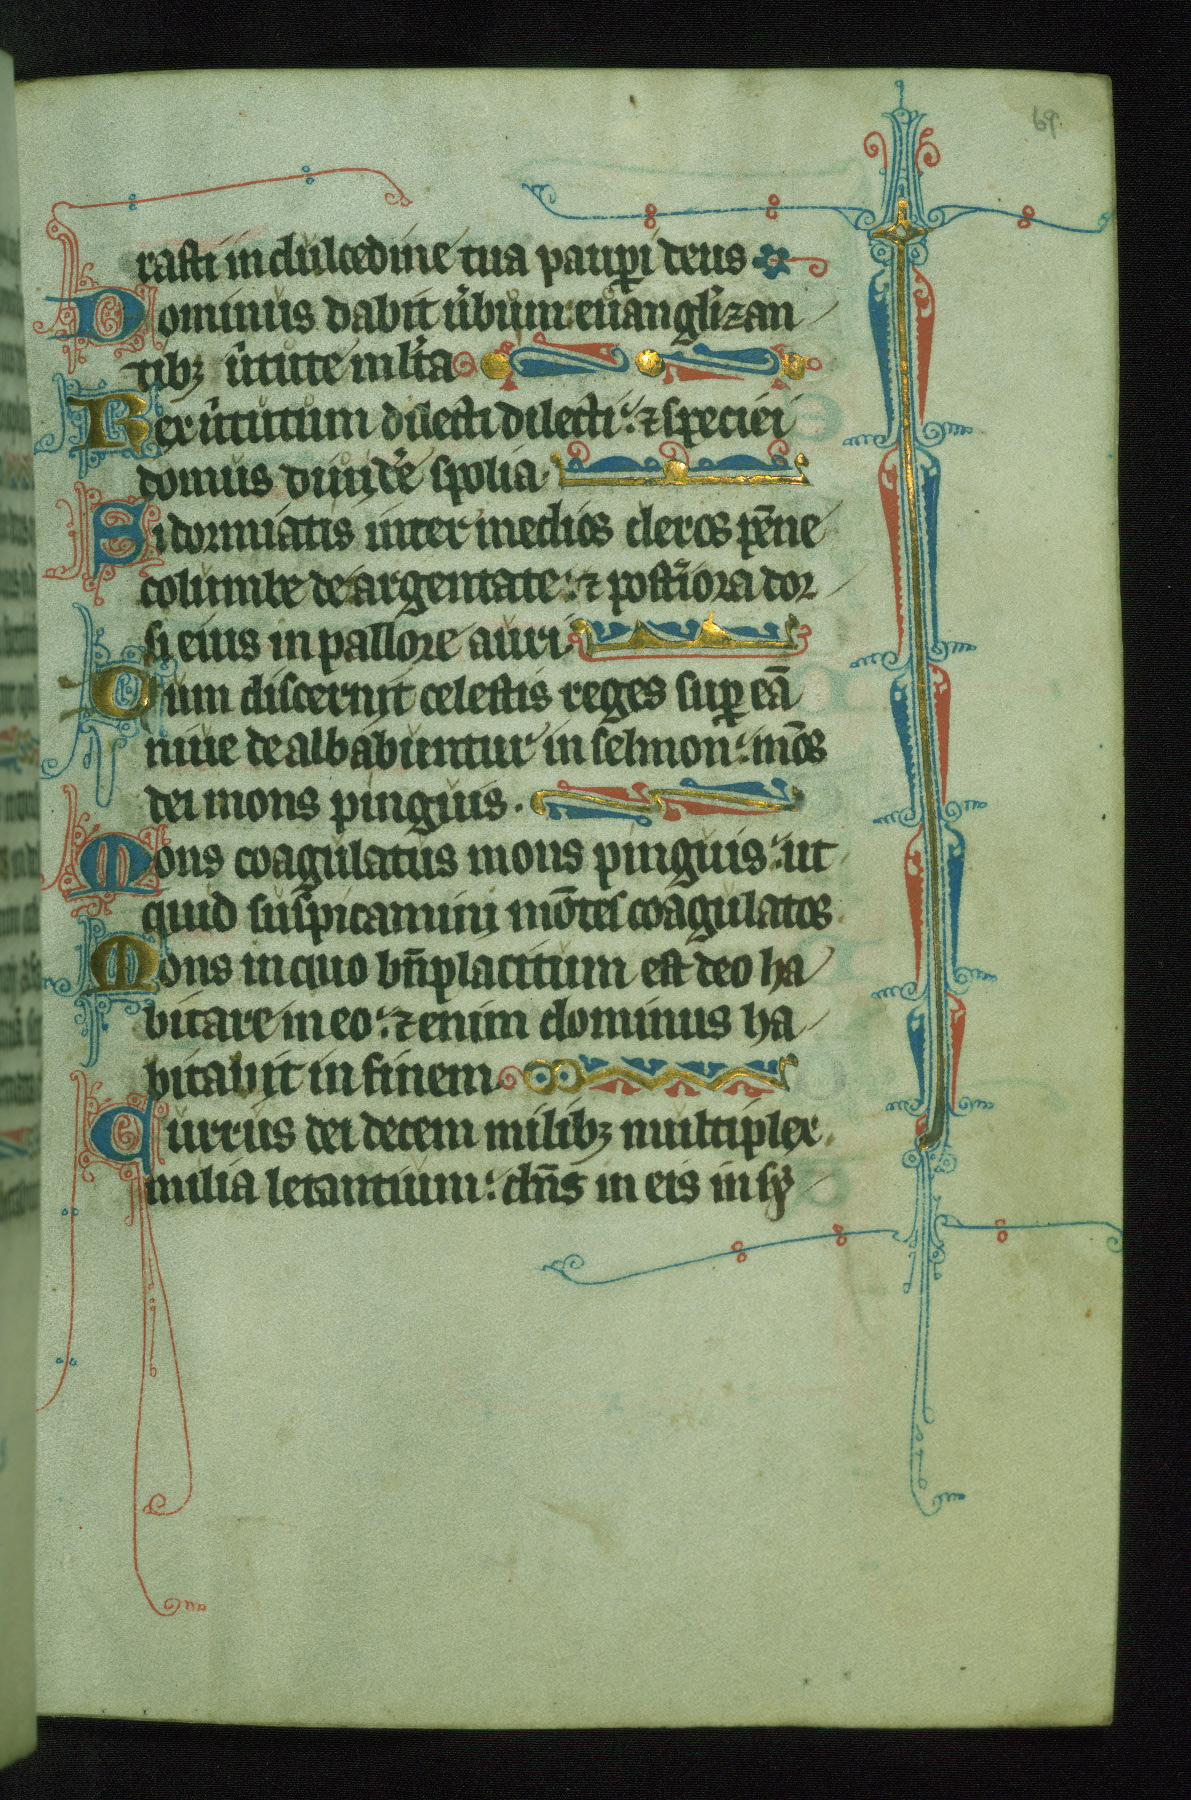 69.
rasti in dulcedine tua paup̲i deus
Dominus dabit u̾bum euangl̾izan
tibꝫ u̾tute mlt̾a
Rex u̾tutum dilecti dilecti: ⁊ speciei
domus diuide̾ spolia
Si dormiatis inter medios cleros pēne
columbe deargentate: ⁊ post̾iora dor
si eius in pallore auri
Cum discernit celestis reges sup̲ eā
niue dealbabuntur in selmon: mōs
dei mons pinguis.
Mons coagulatus mons pinguis: ut
quid suspicamini mōtes coagulatos
Mons in quo bn̄placitum est deo ha
bitare in eo: ⁊ enim dominus ha
bitabit in finem
Currus dei decem milibꝫ multiplex
milia letantium: dn̄s in eis in sy